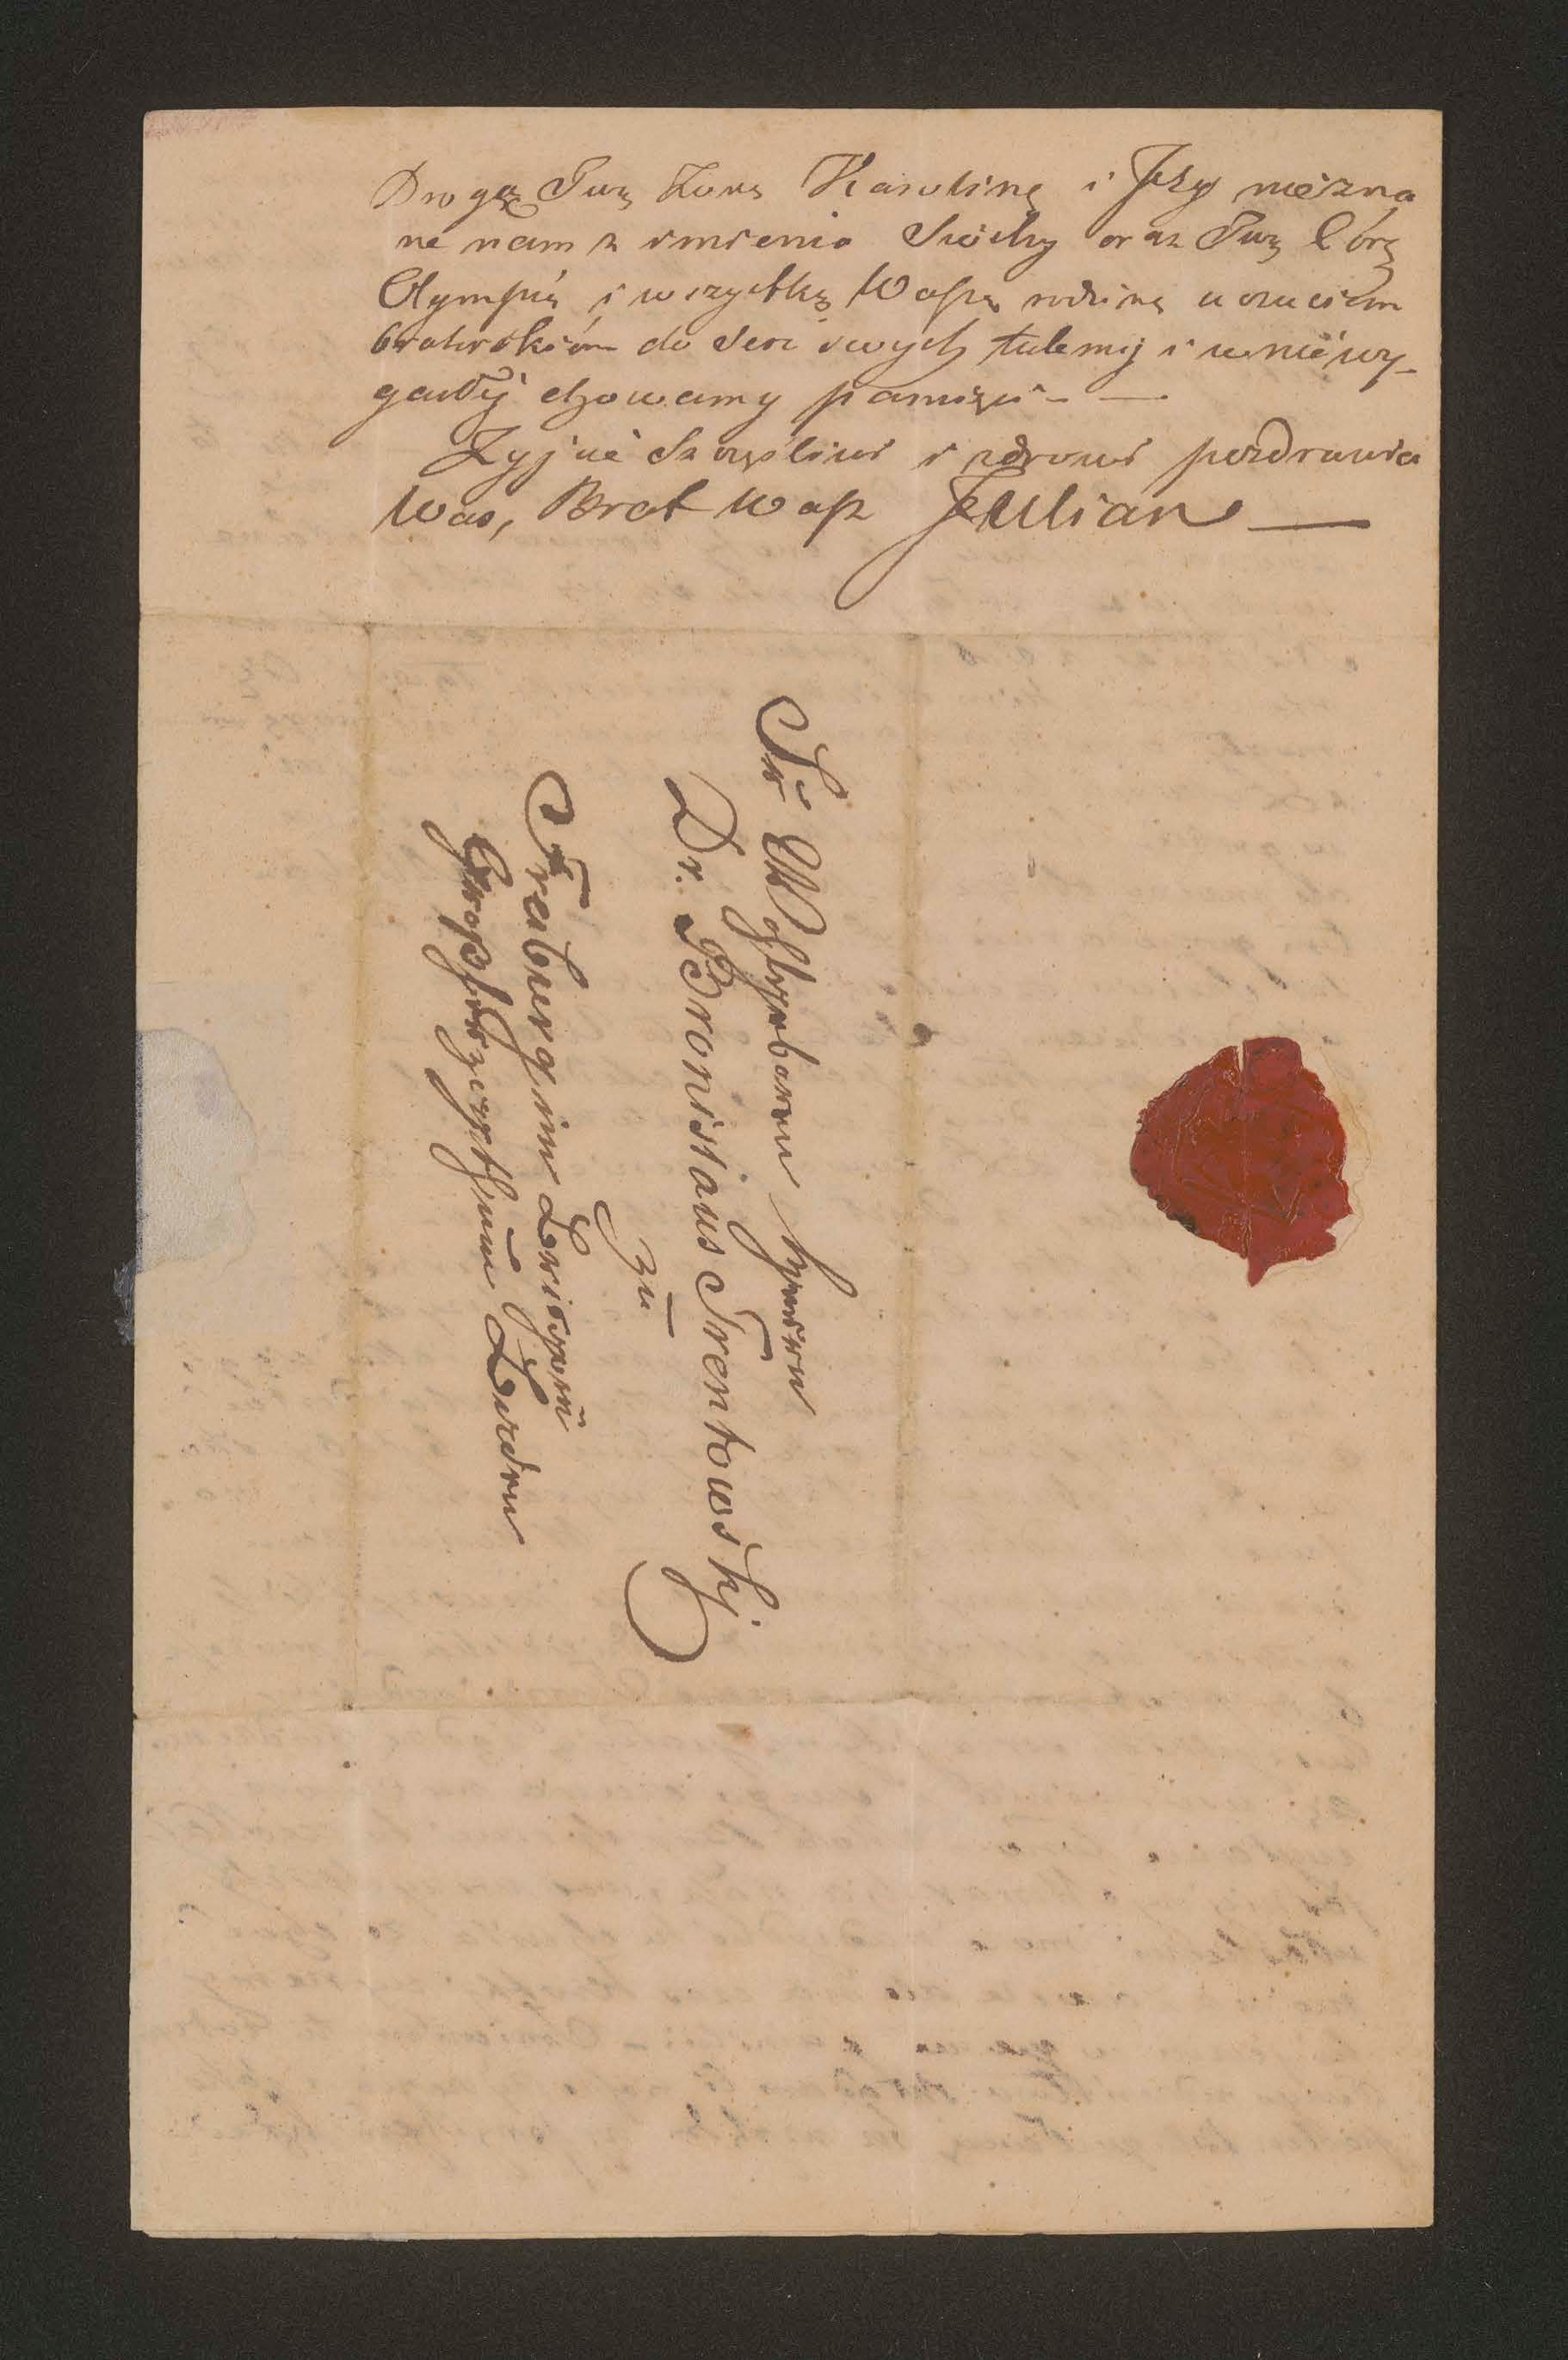 Drogą Twą Żonę Karolinę i Jéy niézna
ne nam z imienia Siostry oraz Twą Córę
Olympię i wszystkę Waszę rodzinę uczuciem
braterskiém do serc swych tulemy i w niéwy-
gasłéj chowamy pamięci - —
Żyjcie szczęśliwi i zdrowi pozdrawia
Was, Brat Wasz Julian —
Sr Wohlgeboren Herren
Dr. Bronislaus Trentowskj
zu
Freiburg im Breisgau
Großherzogthum Baden